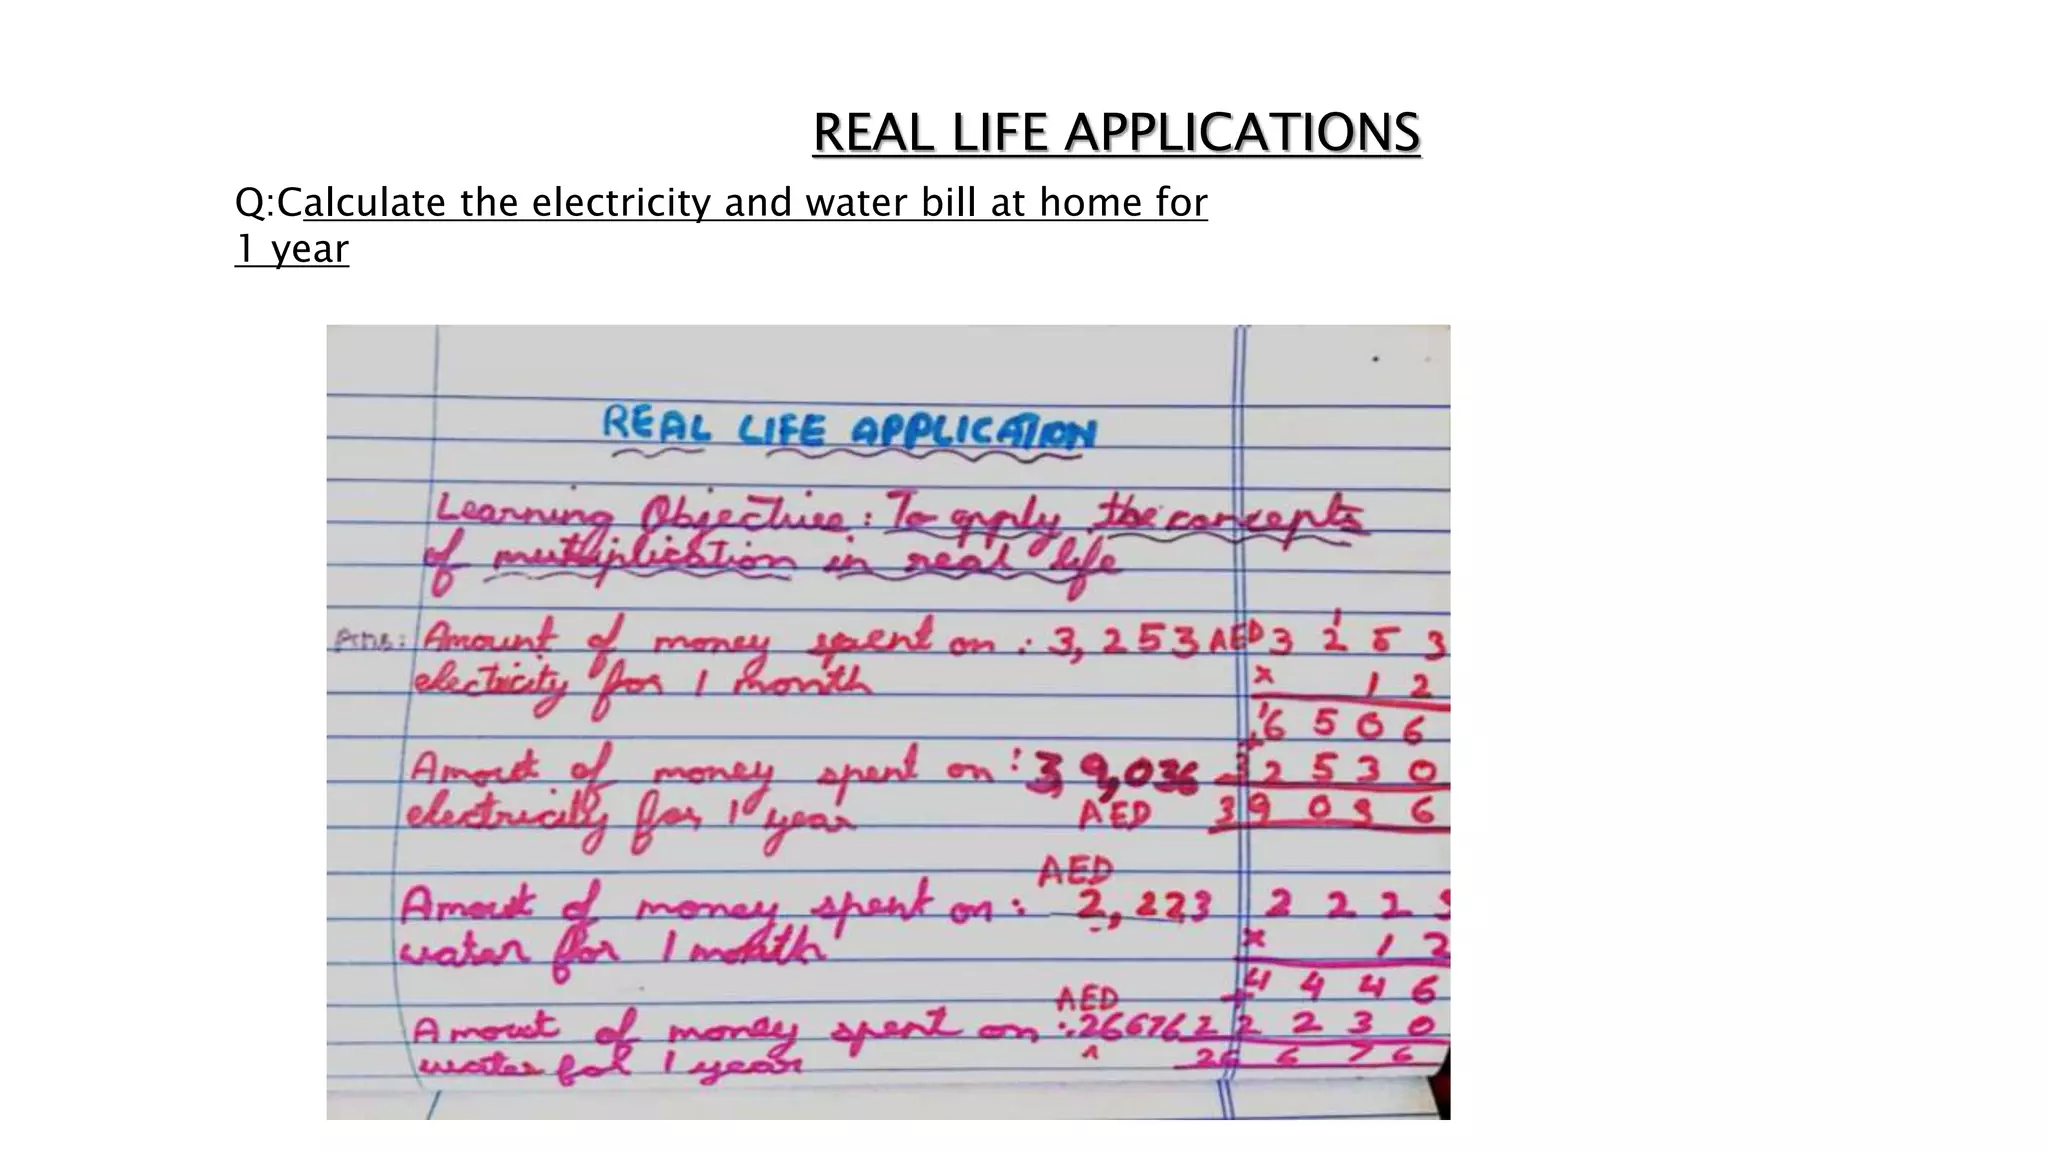 REAL LIFE APPLICATIONS
Q:Calculate the electricity and water bill at home for
1 year
REAL LIFE APPLICATION
Learning Objective: To apply the concepts
of multiplication in real life
Ans: Amount of money spent on : 3,253 AED 3 2 5 3
electricity for 1 month x 1 2
1 6 5 0 6
Amout of money spent on : 39,036 + 3 2 5 3 0
electricity for 1 year AED 3 9 0 3 6
AED
Amout of money spent on : 2,223 2 2 2 3
water for 1 month x 1 2
AED + 4 4 4 6
Amout of money spent on : 26676 2 2 2 3 0
water for 1 year 26 6 7 6